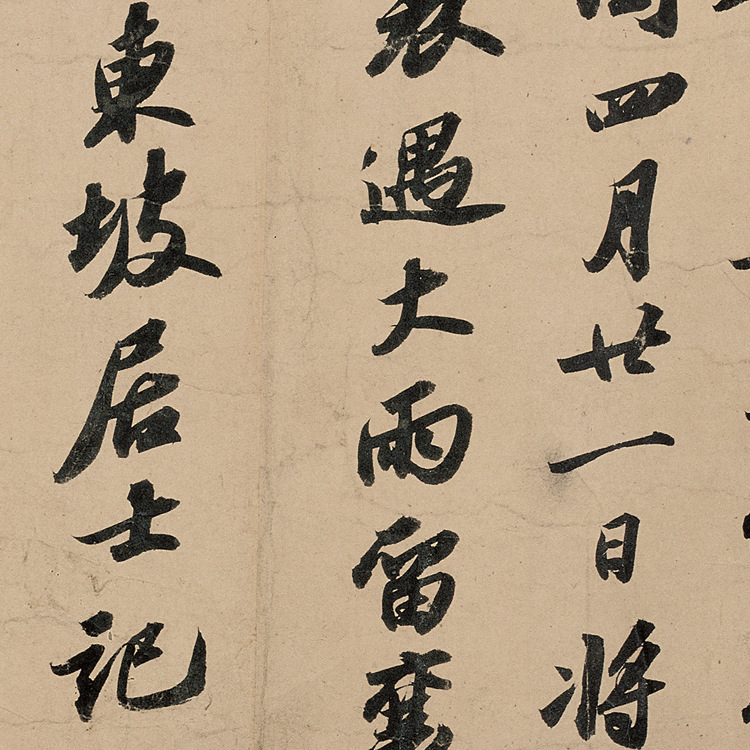 閏四月廿一日將
表遇大雨留襄
東坡居士記